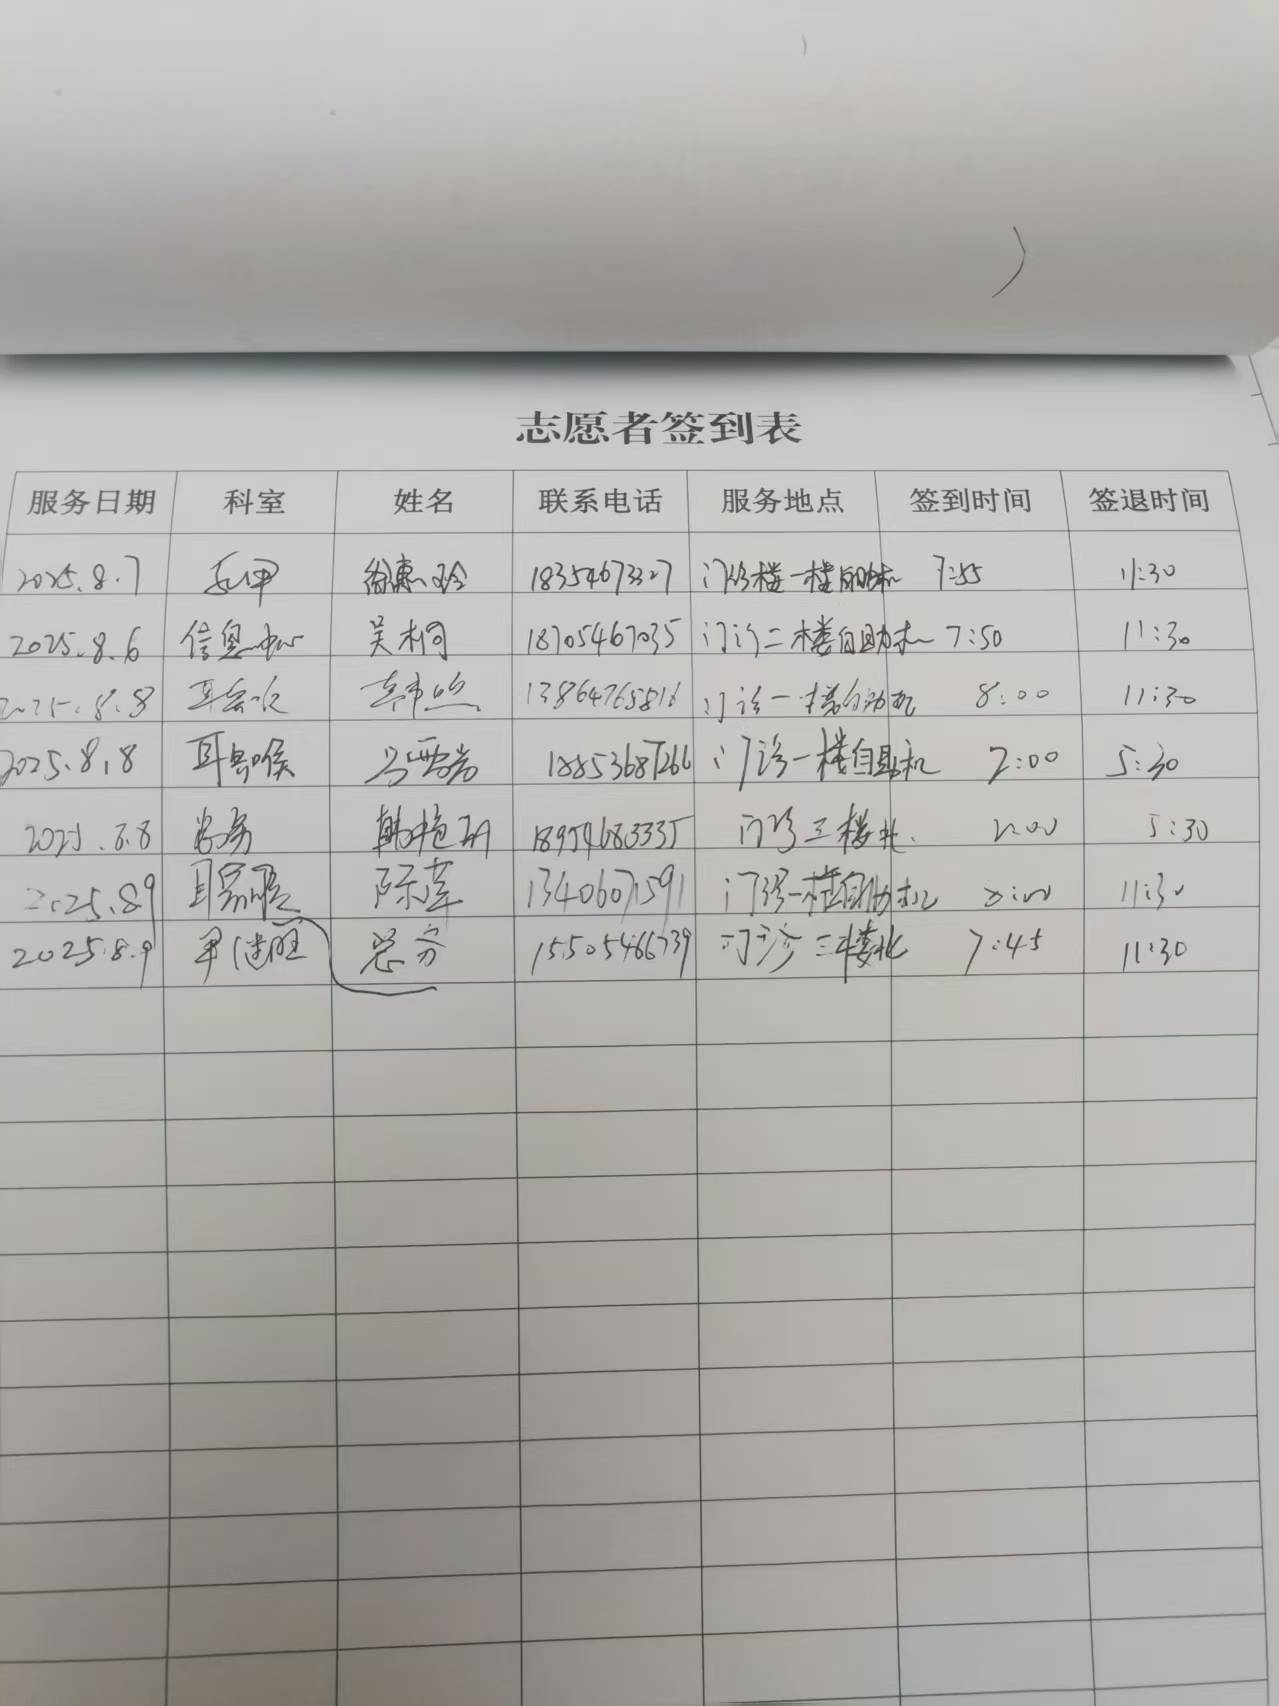 志愿者签到表
服务日期 科室 姓名 联系电话 服务地点 签到时间 签退时间
2025.8.7 18354673327 门诊楼一楼自助机 7:55 11:30
2025.8.6 信息中心 吴柯 18705467035 门诊二楼自助机 7:50 11:30
2025.8.8 13864765816 门诊一楼自助机 8:00 11:30
2025.8.8 耳鼻喉 马西岩 18853687266 门诊一楼自助机 2:00 5:30
2025.8.8 18954683335 门诊三楼北 2:00 5:30
2025.8.9 耳鼻喉 陈莲 13406071591 门诊一楼自助机 8:00 11:30
2025.8.9 总务 15505466739 门诊三楼北 7:45 11:30